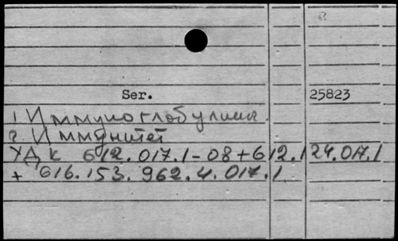 Ser. 25823
1 Иммуноглобулины.
2. Иммунитет
УДК 612.017.1-08+612.124.017.1
+ 616.153.962.4.017.1